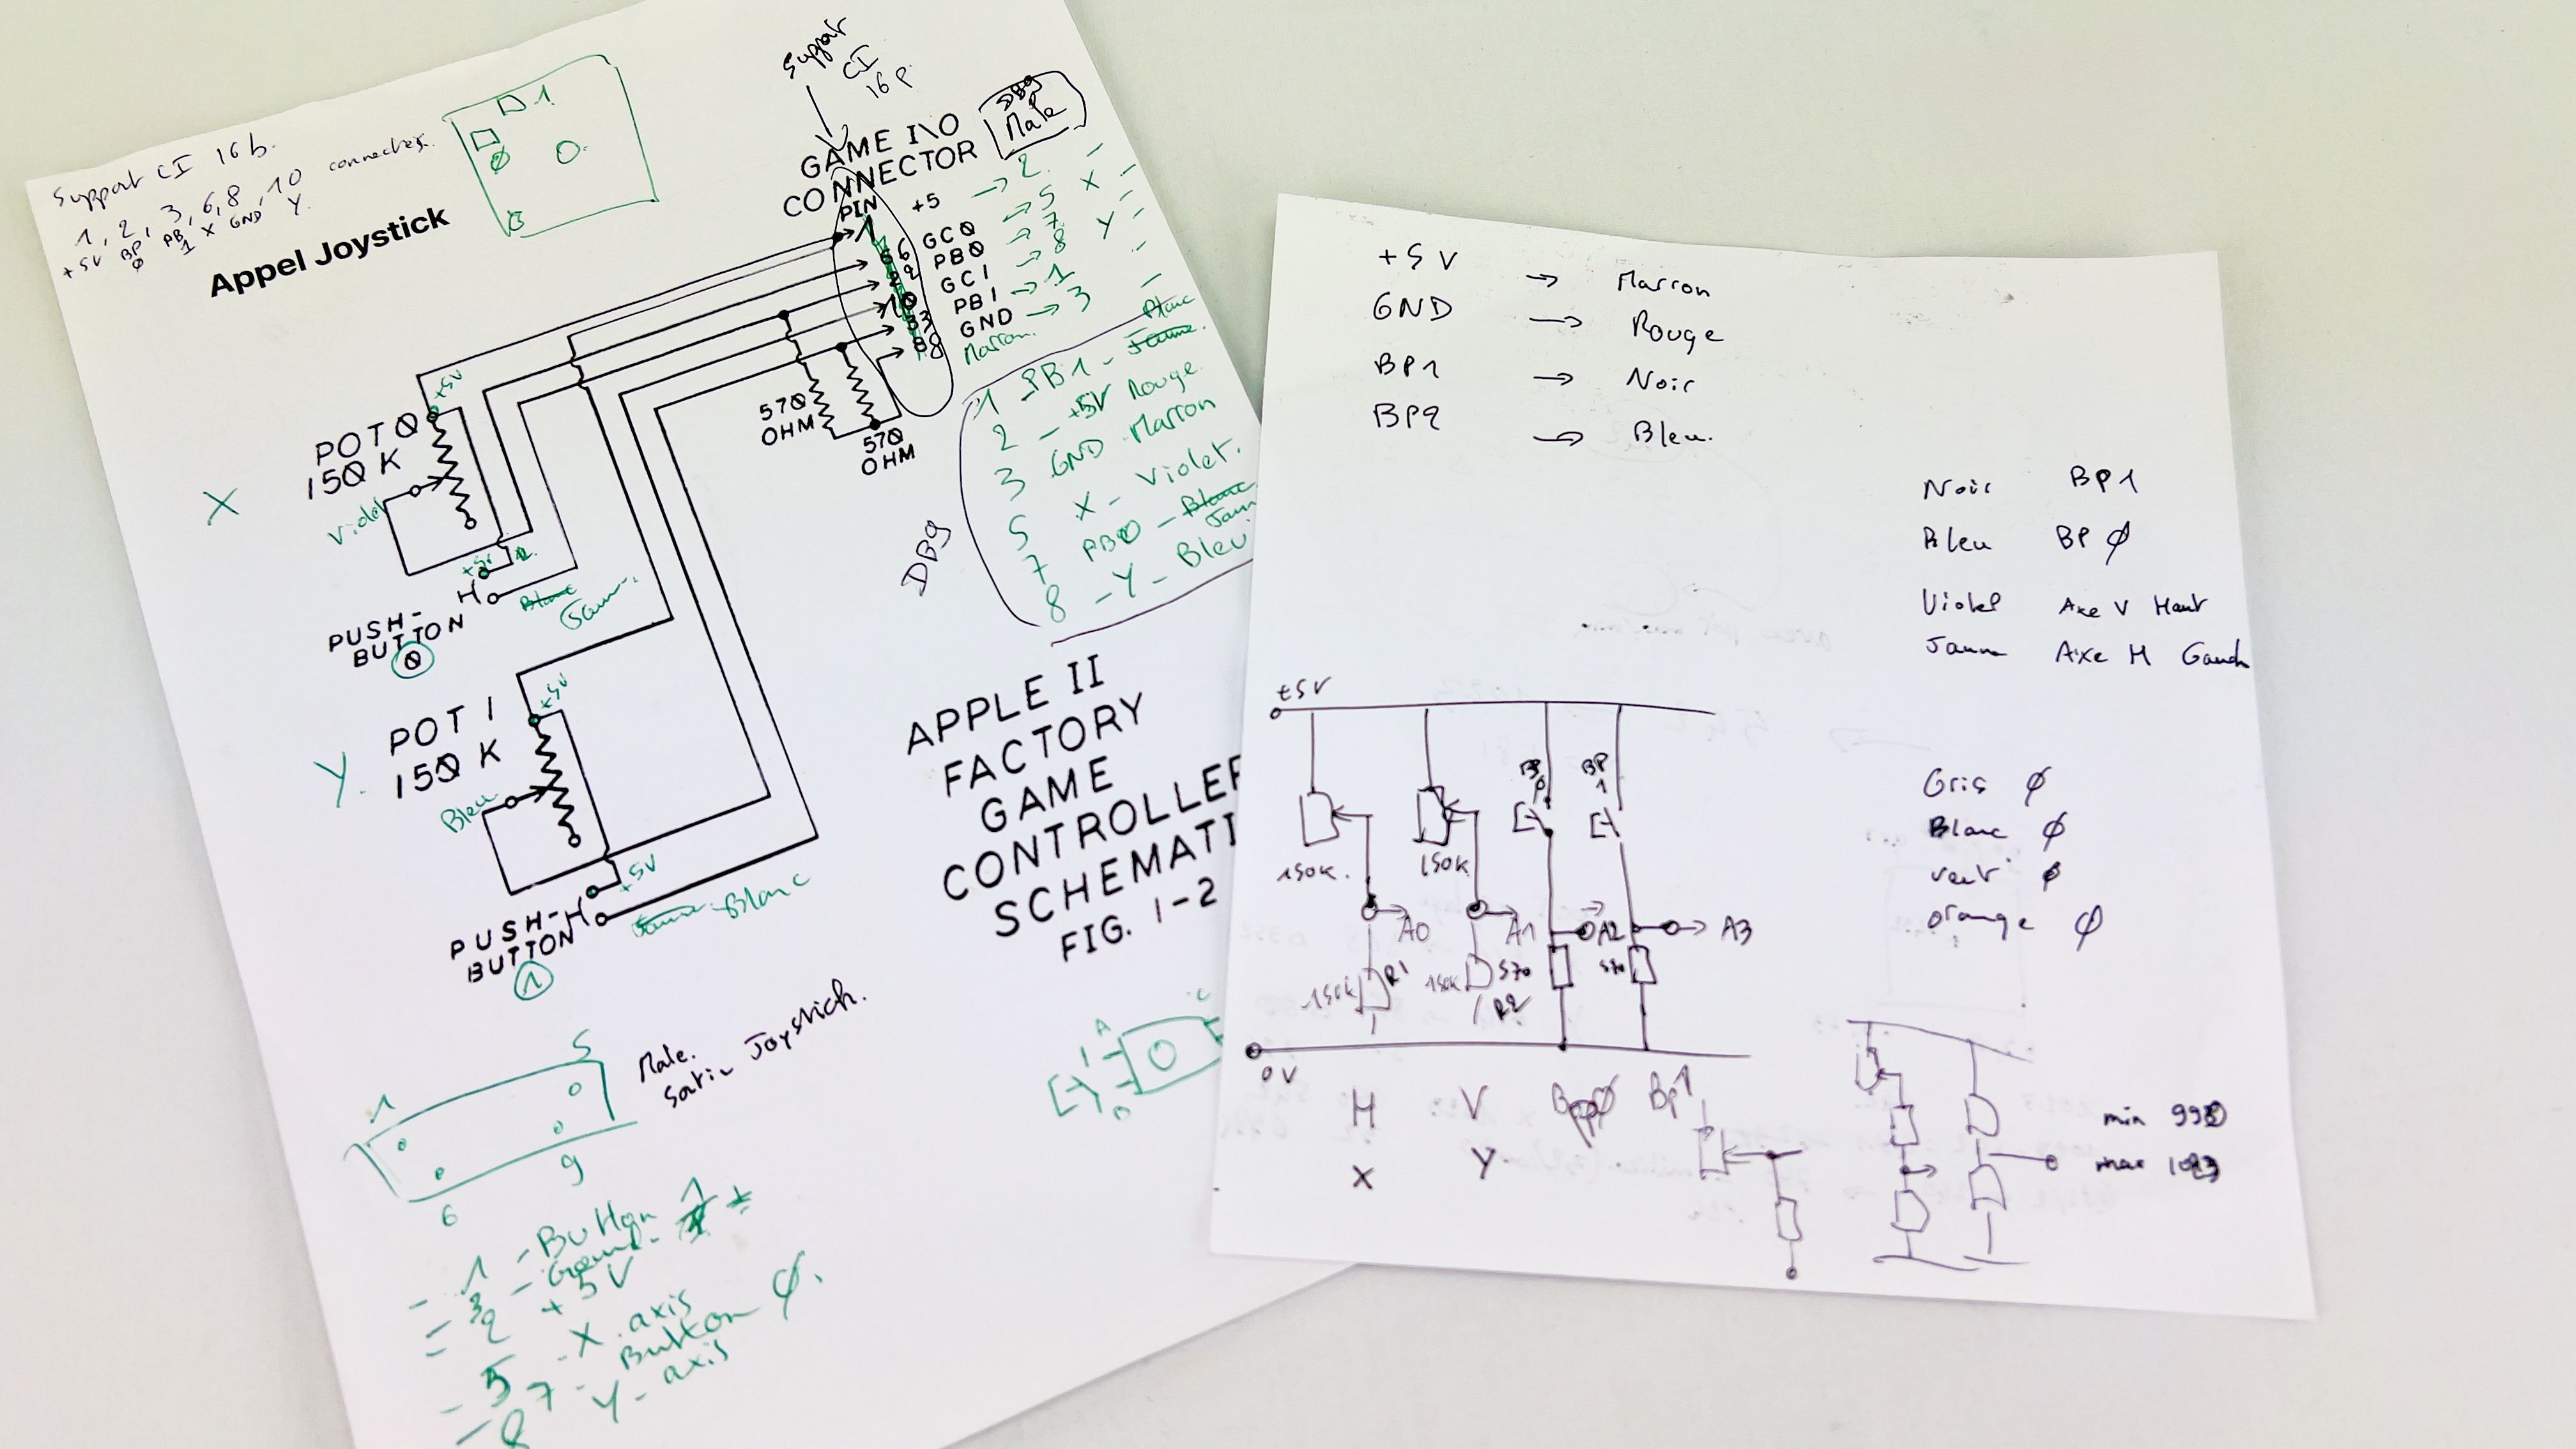 Support CI 16 b.
1, 2, 3, 6, 8, 10
+5V BP Ø PB 1 X GND Y.
Appel Joystick
1
Ø
Support
CI
16 p.
GAME I\O
CONNECTOR
DB9
Male
PIN
1 +5 → 2
6 GC0 → 5 X
2 PB0 → 7
10 GC1 → 8 Y
3 PB1 → 1
8 GND → 3
Marron.
+5V
POT 0
150 K
Violet
X
+5V
PUSH-
BUTTON
0
Blanc
Jaune
570
OHM
570
OHM
DB9
Blanc
1 PB1 - Jaune
2 - +5V Rouge
3 GND Marron
5 X - Violet.
7 PB0 - Blanc
Jaun
8 - Y - Bleu
+5V
POT 1
150 K
Y.
Bleu
+5V
PUSH-
BUTTON
1
Jaune Blanc
APPLE II
FACTORY
GAME
CONTROLLER
SCHEMATI
FIG. 1-2
Male.
Joystick.
1
5
6
9
A
C
B
- 1 - Button 1
- 3 - Ground
= 2 + 5V
- 5 - X. axis
7 - Button Ø.
- 8 Y - axis
+5V → Marron
GND → Rouge
BP1 → Noir
BP2 → Bleu.
Noir BP1
Bleu BP Ø
Violet Axe V Haut
Jaune Axe H Gauch
Gris Ø
Blanc Ø
vert Ø
orange Ø
+5V
BP
0
BP
1
150K.
150K
A0
A1
A2
A3
150K
R1
150K
R2
570
570
0V
H V BPØ BP1
X Y
min 998
max 1023